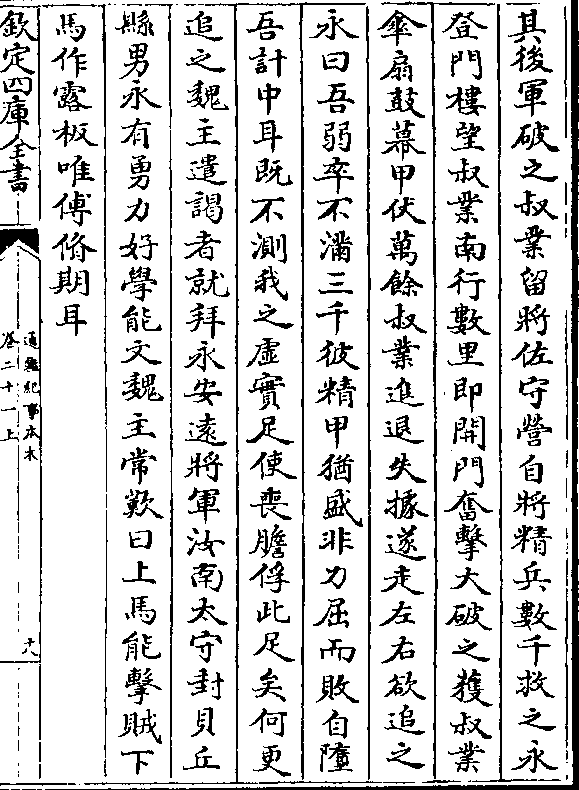 其後軍破之叔業留將佐守營自將精兵數千救之永
登門樓望叔業南行數里即開門奮擊大破之獲叔業
傘扇鼓幕甲仗萬餘叔業進退失據遂走左右欲追之
永曰吾弱卒不滿三千彼精甲猶盛非力屈而敗自墮
吾計中耳既不測我之虛實足使喪膽俘此足矣何更
追之魏主遣謁者就拜永安遠將軍汝南太守封貝丘
縣男永有勇力好學能文魏主常歎曰上馬能擊賊下
馬作露板唯傅脩期耳
欽定四庫全書
通鑑紀事本末
卷二十一上
十八